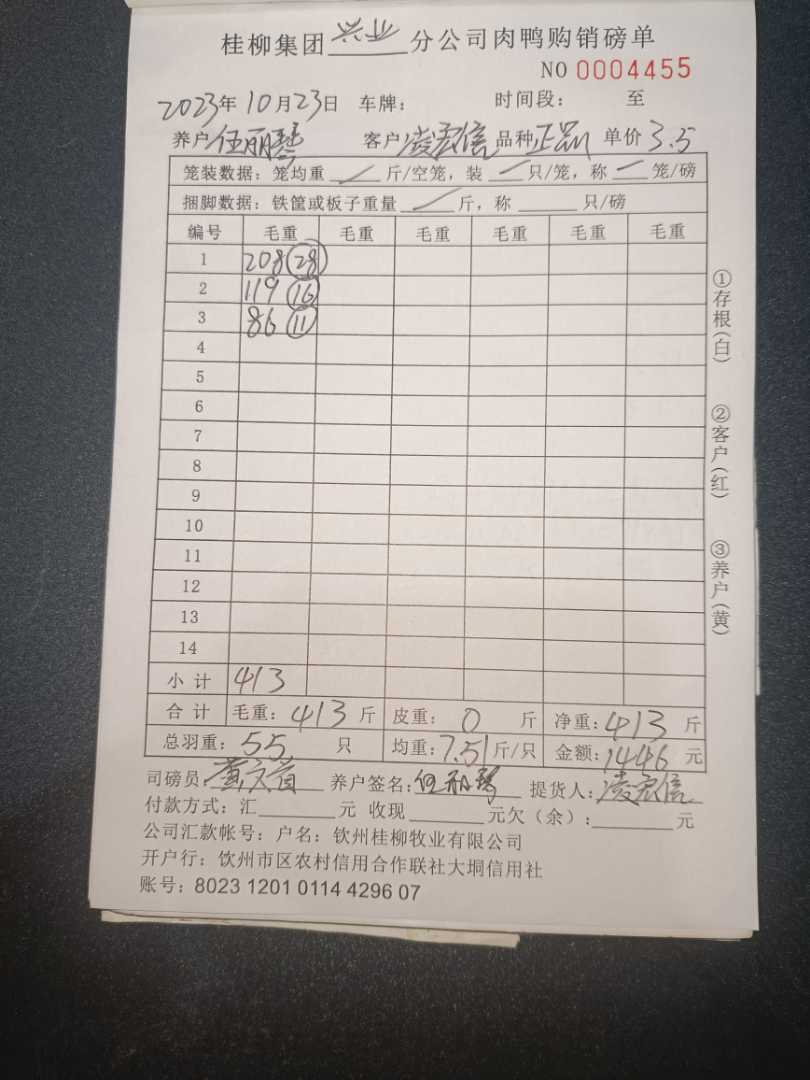 桂柳集团兴业分公司肉鸭购销磅单
NO 0004455
2023年10月23日 车牌: 时间段: 至
养户任丽琴 客户凌宏信 品种正品 单价3.5
笼装数据: 笼均重 / 斤/空笼, 装 / 只/笼, 称 / 笼/磅
捆脚数据: 铁筐或板子重量 / 斤, 称 只/磅
编号 毛重 毛重 毛重 毛重 毛重 毛重
1 208 28
2 119 16
3 86 11
4
5
6
7
8
9
10
11
12
13
14
小计 413
合计 毛重: 413 斤 皮重: 0 斤 净重: 413 斤
总羽重: 55 只 均重: 7.51 斤/只 金额: 1446 元
司磅员: 养户签名: 任丽琴 提货人: 凌宏信
付款方式: 汇 元 收现 元欠(余): 元
公司汇款帐号: 户名: 钦州桂柳牧业有限公司
开户行: 饮州市区农村信用合作联社大垌信用社
账号: 8023 1201 0114 4296 07
①存根(白)
②客户(红)
③养户(黄)